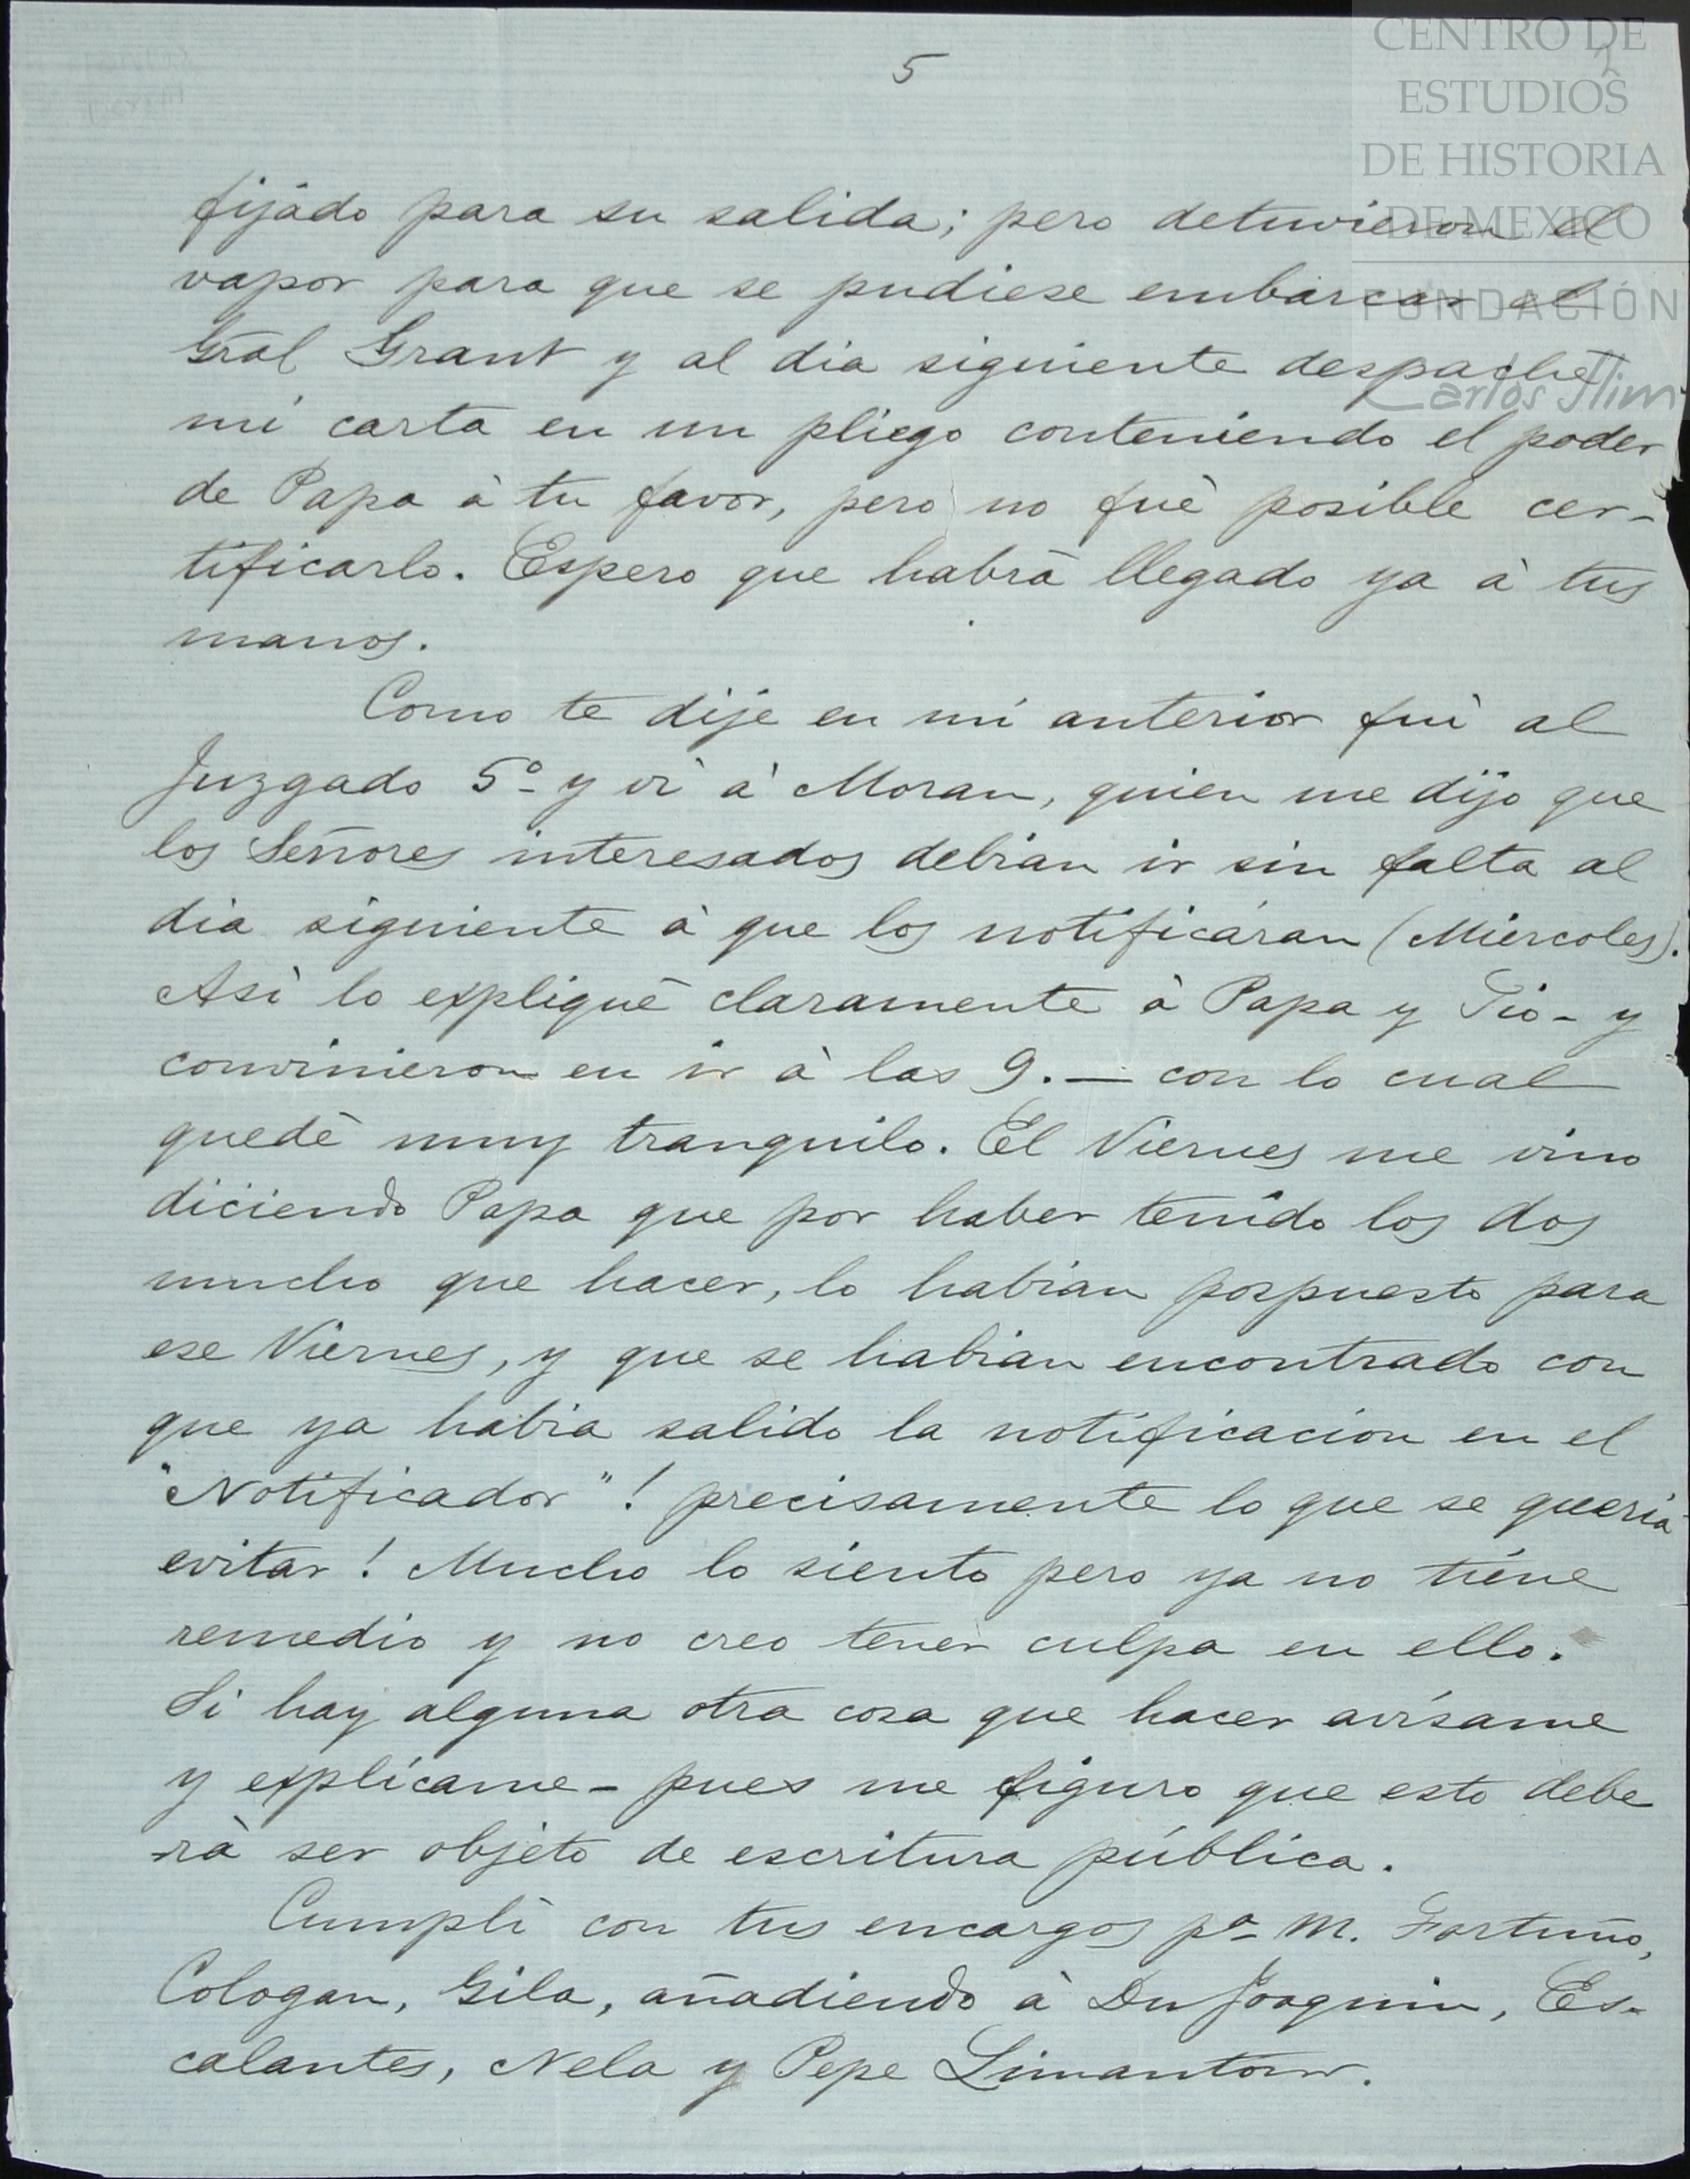 5
CENTRO DE
ESTUDIOS
DE HISTORIA
DE MEXICO
FUNDACIÓN
Carlos Slim
fijádo para su salida; pero detuvieron el
vapor para que se pudiese embarcar al
Gral Grant y al dia siguiente despaché
mi carta en un pliego conteniendo el poder
de Papa à tu favor, pero no fuè posible cer-
tificarlo. Espero que habrà llegado ya à tus
manos.
Como te dije en mi anterior fuì al
Juzgado 5º y vì à Moran, quien me dijo que
los Señores interesados debian ir sin falta al
dia siguiente à que los notificáran (Miercoles).
Asì lo expliquè claramente à Papa y Tio - y
convinieron en ir à las 9. — con lo cual
quedè muy tranquilo. El Viernes me vino
diciendo Papa que por haber tenido los dos
mucho que hacer, lo habian pospuesto para
ese Viernes, y que se habian encontrado con
que ya habia salido la notificacion en el
"Notificador"! precisamente lo que se queria
evitar! Mucho lo siento pero ya no tiene
remedio y no creo tener culpa en ello.
Si hay alguna otra cosa que hacer avísame
y explícame - pues me figuro que esto debe
rà ser objeto de escritura pública.
Cumplì con tus encargos pª M. Fortuño,
Cologan, Gila, añadiendo à Dn Joaquin, Es-
calantes, Nela y Pepe Limantour.